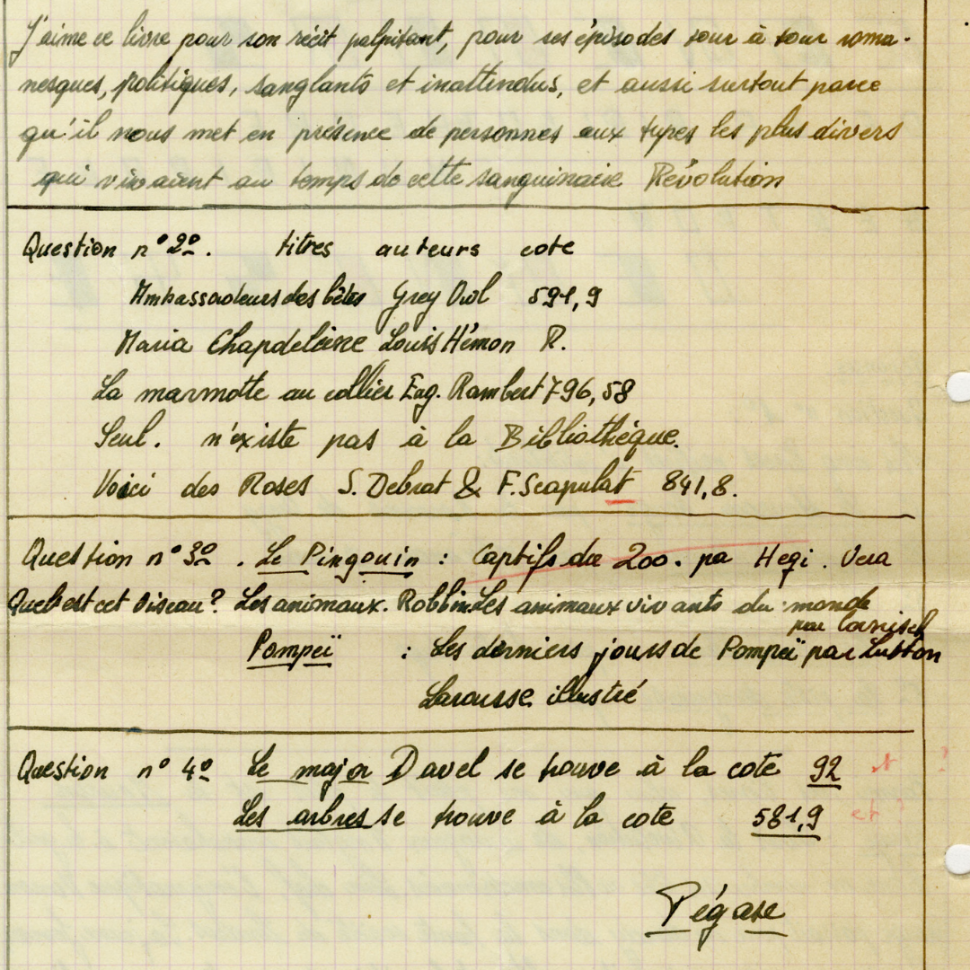 J'aime ce livre pour son récit palpitant, pour ses épisodes tour à tour roma-
nesques, politiques, sanglants et inattendus, et aussi surtout parce
qu'il nous met en présence de personnes aux types les plus divers
qui vivaient au temps de cette sanguinaire Révolution
Question n° 2°. titres auteurs cote
Ambassadeurs des bêtes Grey Owl 591,9
Maria Chapdelaine Louis Hémon R.
La marmotte au collier Eug. Rambert 796,58
Seul. n'existe pas à la Bibliothèque.
Voici des Roses S. Debrat & F. Scapulat 841,8.
Question n° 3°. Le Pingouin : Captifs du zoo. pa Hegi. Vera
Quel est cet oiseau? Les animaux. Robbin Les animaux vivants du monde
par Cornisch
Pompeï : Les derniers jours de Pompeï par Lutton
Larousse illustré
Question n° 4° Le major Davel se trouve à la cote 92 et ?
Les arbres se trouve à la cote 581,9 et ?
Pégase